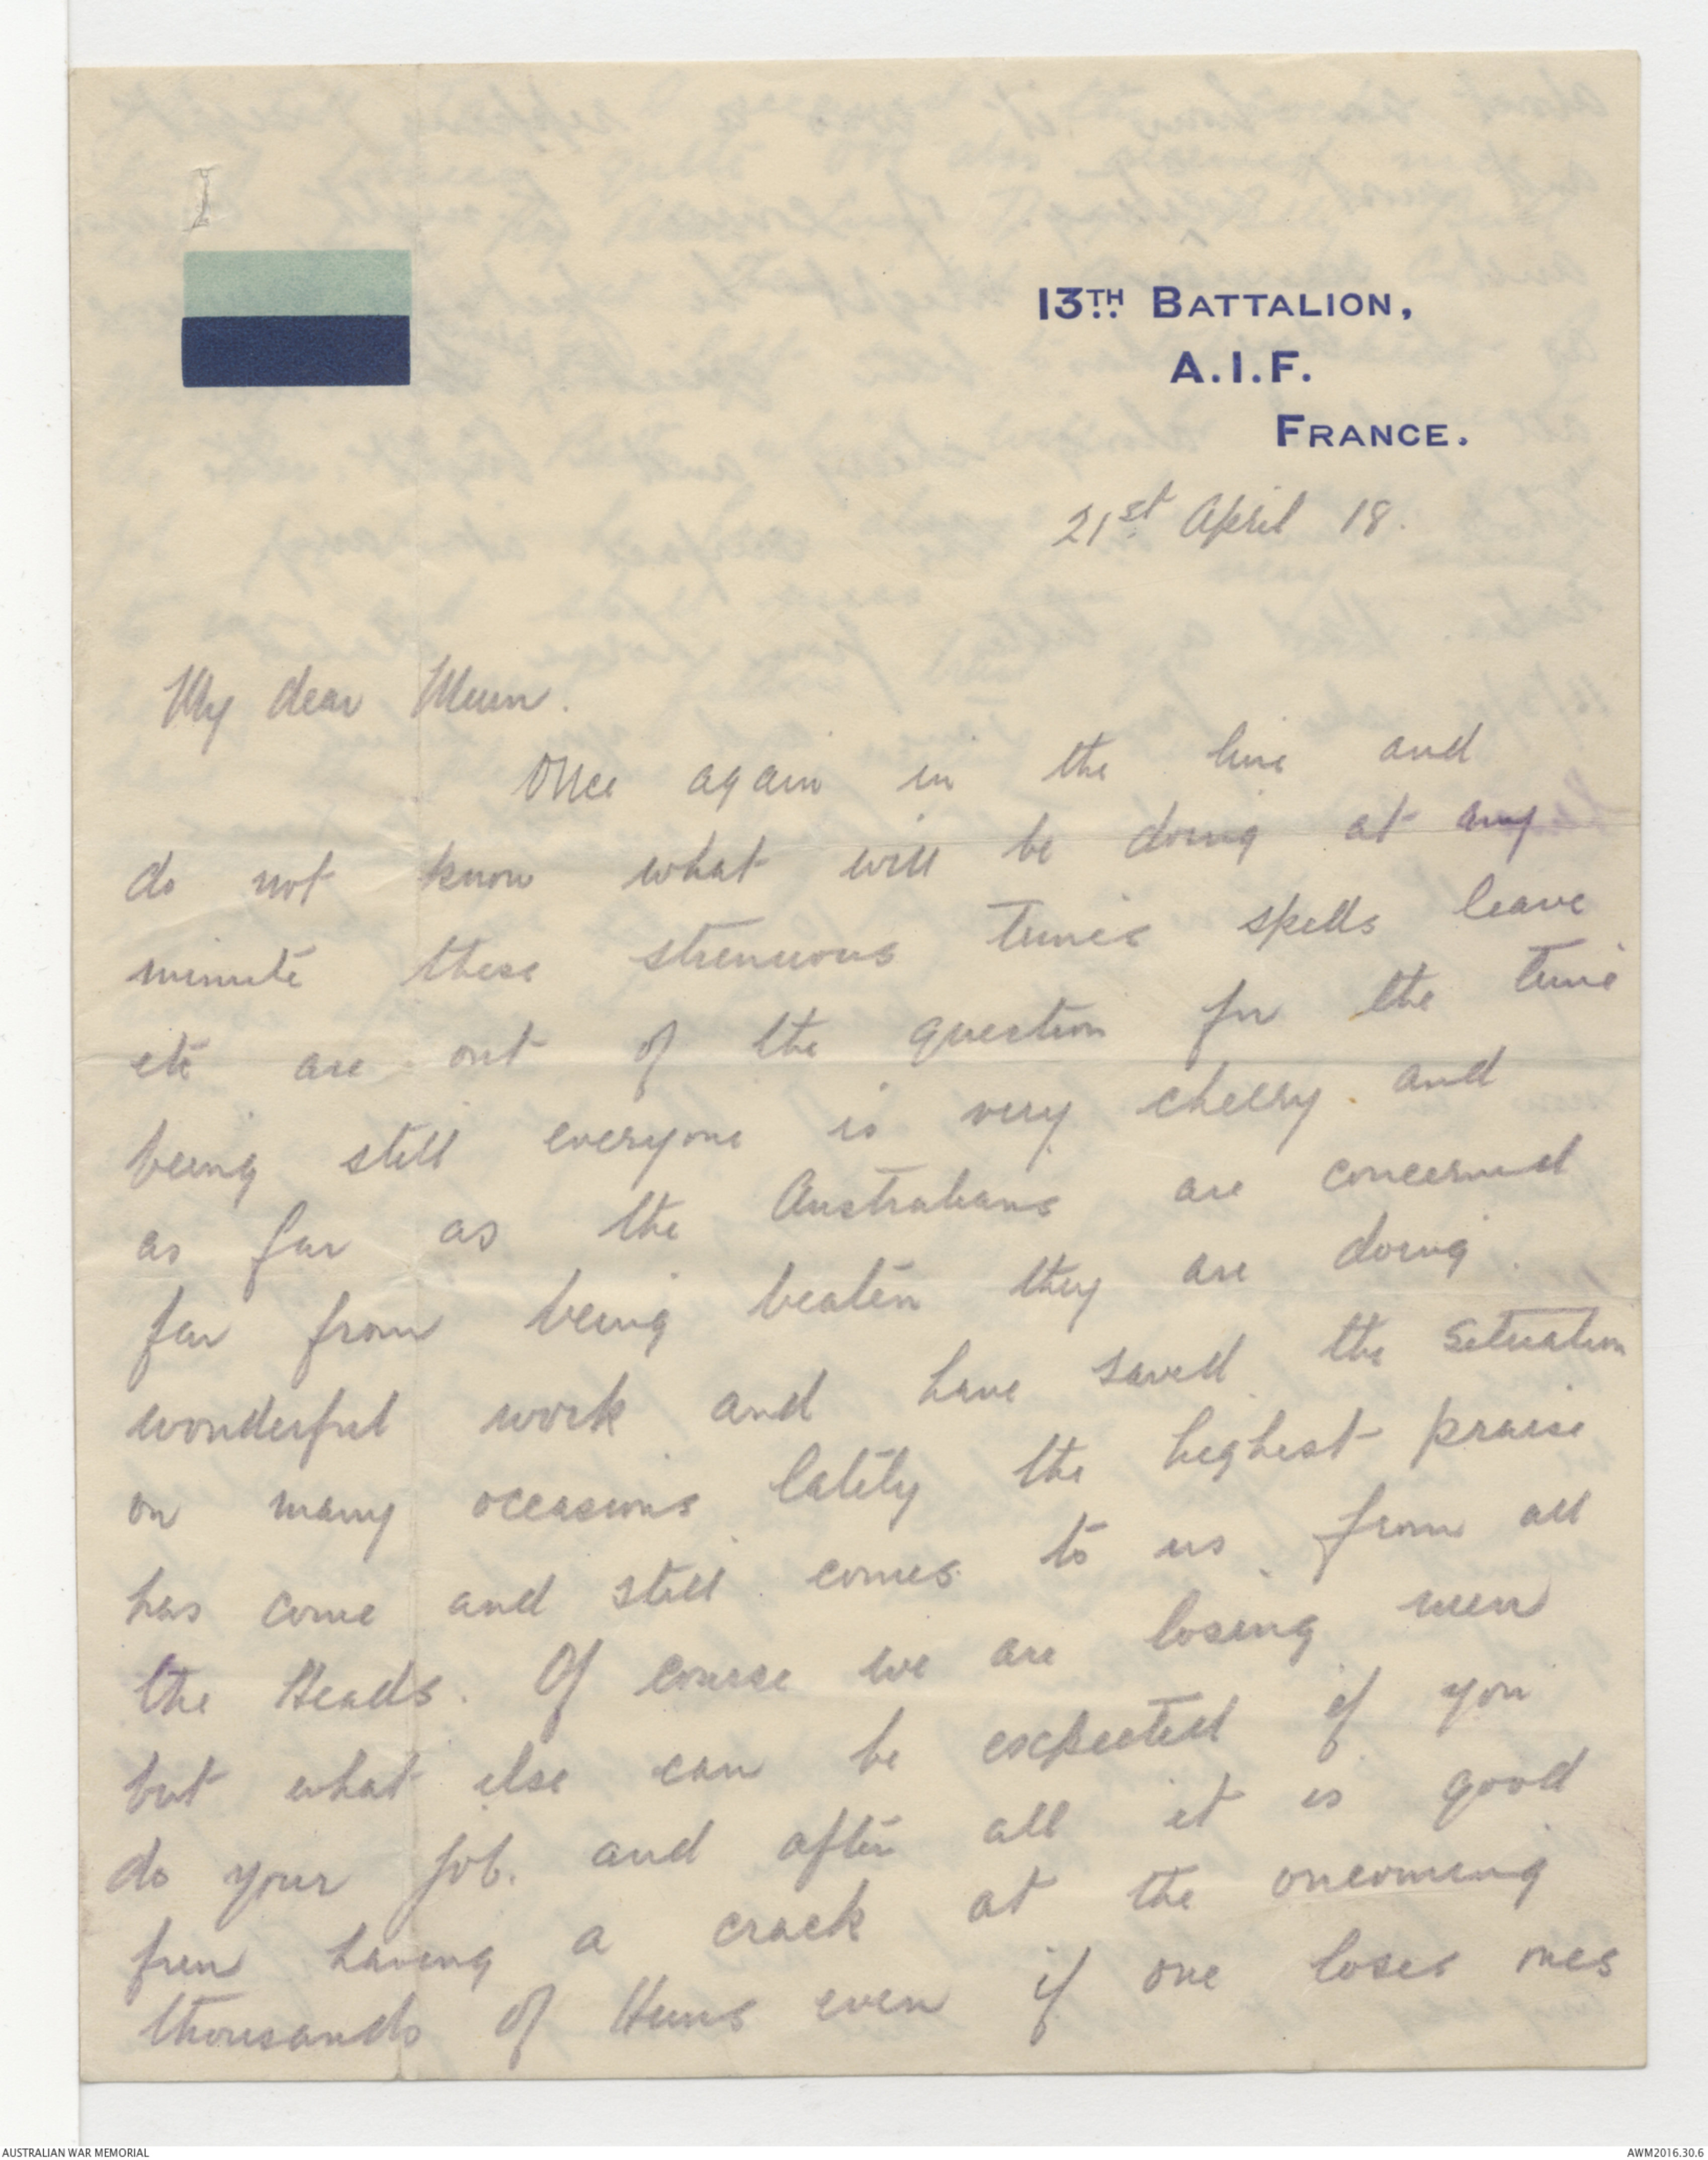 13TH BATTALION,
A.I.F.
FRANCE.
21st April 18.
My dear Mum.
Once again in the line and
do not know what will be doing at any
minute these strenuous times spells leave
etc are out of the question for the time
being still everyone is very cheery. and
as far as the Australians are concerned
far from being beaten they are doing
wonderful work and have saved the situation
on many occasions lately the highest praise
has come and still comes to us from all
the Heads. Of course we are losing men
but what else can be expected if you
do your job. and after all it is good
fun having a crack at the oncoming
thousands of Huns even if one loses ones
AUSTRALIAN WAR MEMORIAL
AWM2016.30.6